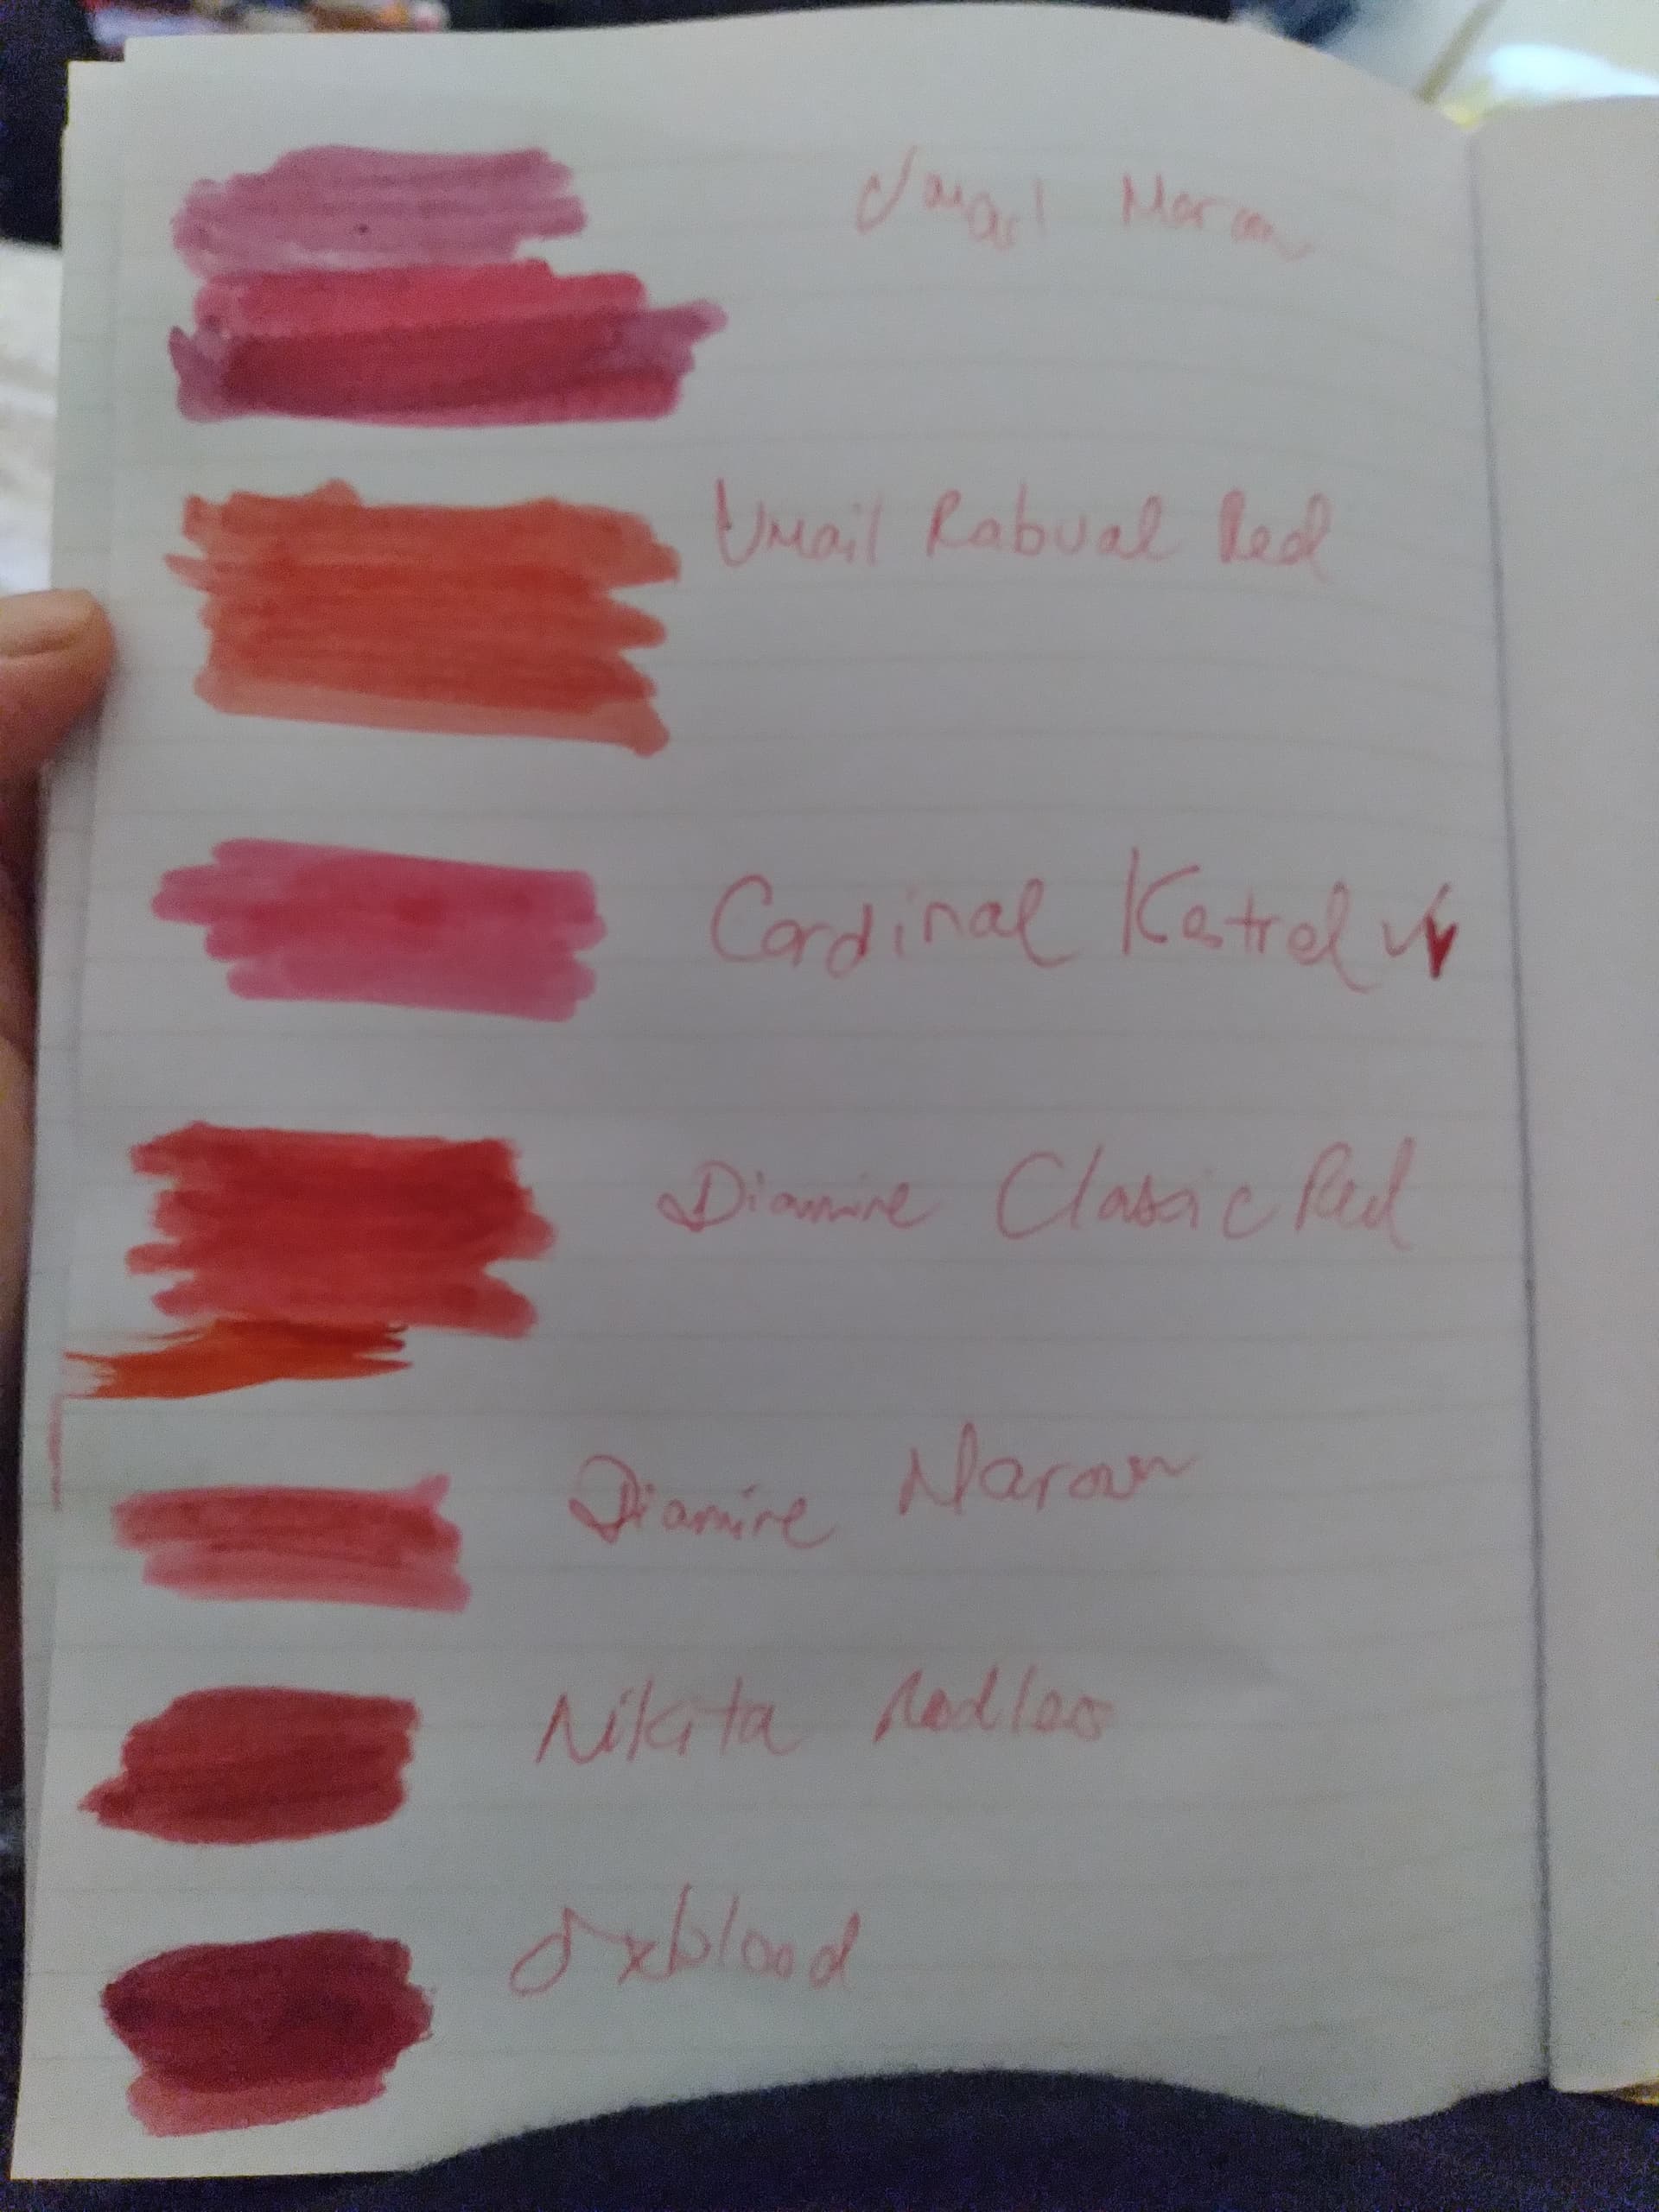 Umail Maroon
Umail Rabual Red
Cardinal Kestrel
Diamine Classic Red
Diamine Maroon
Nikita
Oxblood